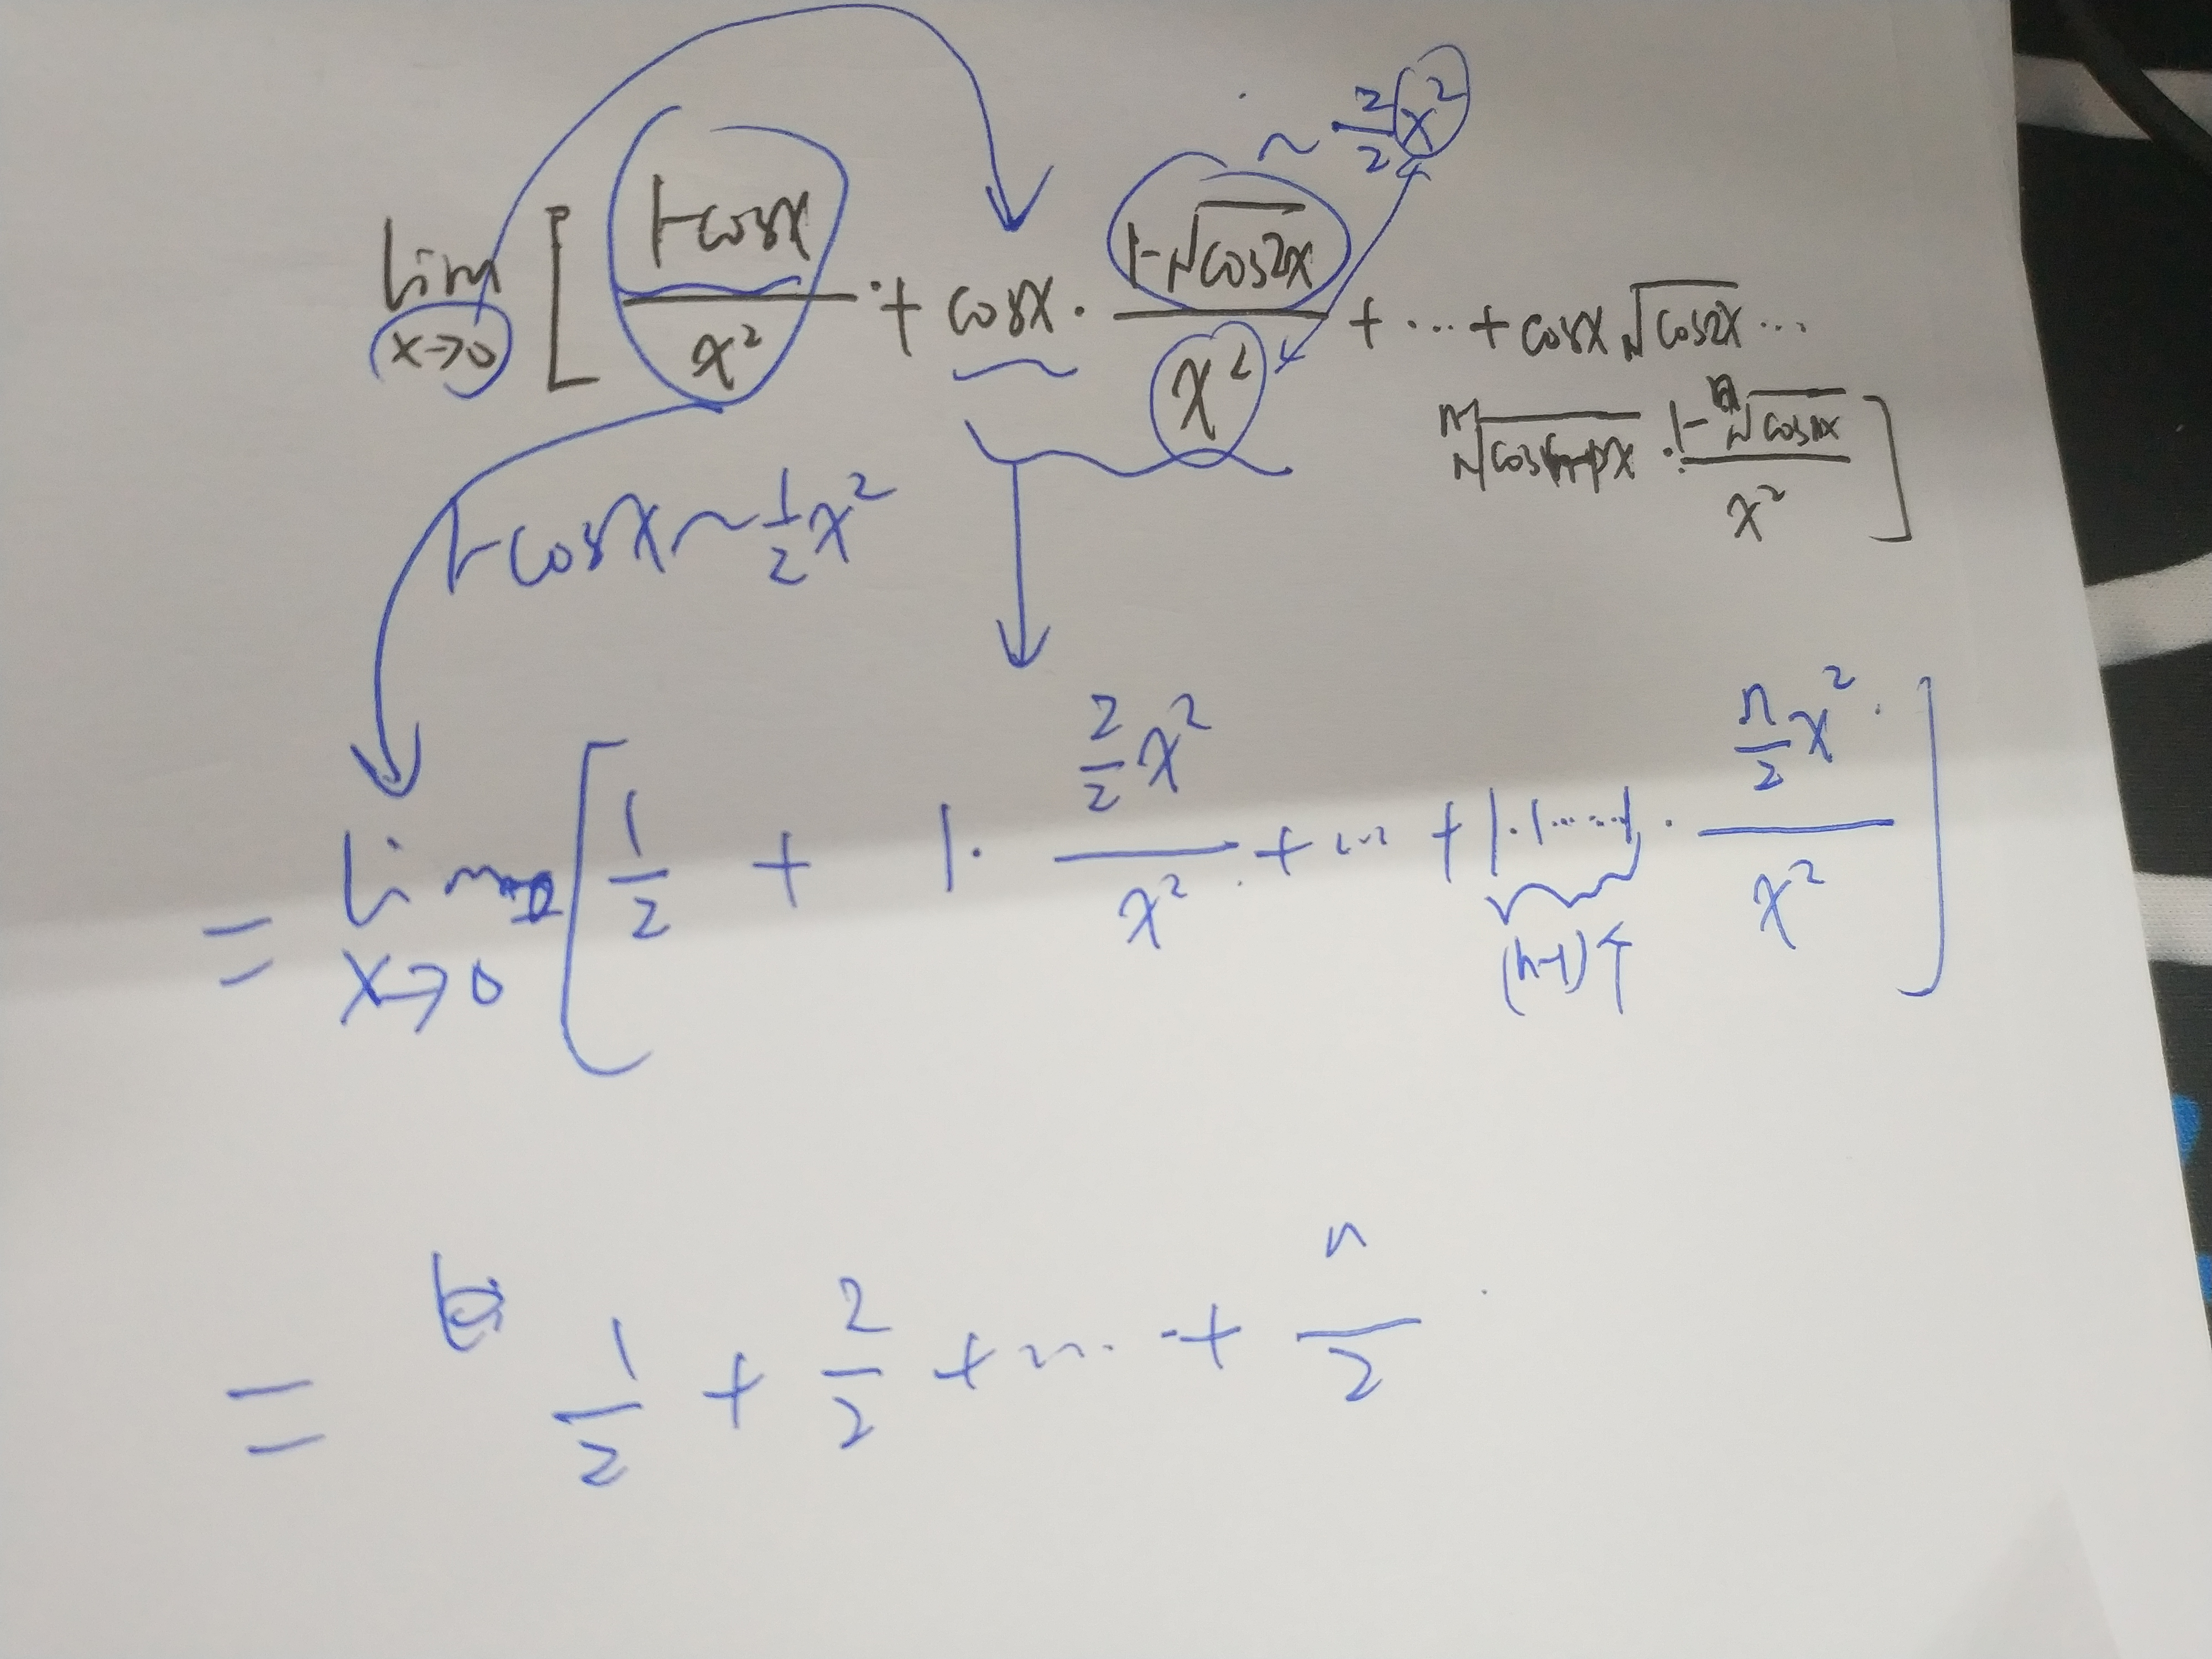 ~ 2/2 x²
lim x→0 [ (1-cosx)/x² + cosx · (1-√cos2x)/x² + ··· + cosx √cos2x ···
ⁿ⁻¹√cos(n-1)x · (1-ⁿ√cosnx)/x² ]
1-cosx ~ 1/2 x²
= lim x→0 [ 1/2 + 1 · (2/2 x²)/x² + ··· + 1·1·····1 · (n/2 x²)/x² ]
(n-1)个
= 1/2 + 2/2 + ···· + n/2